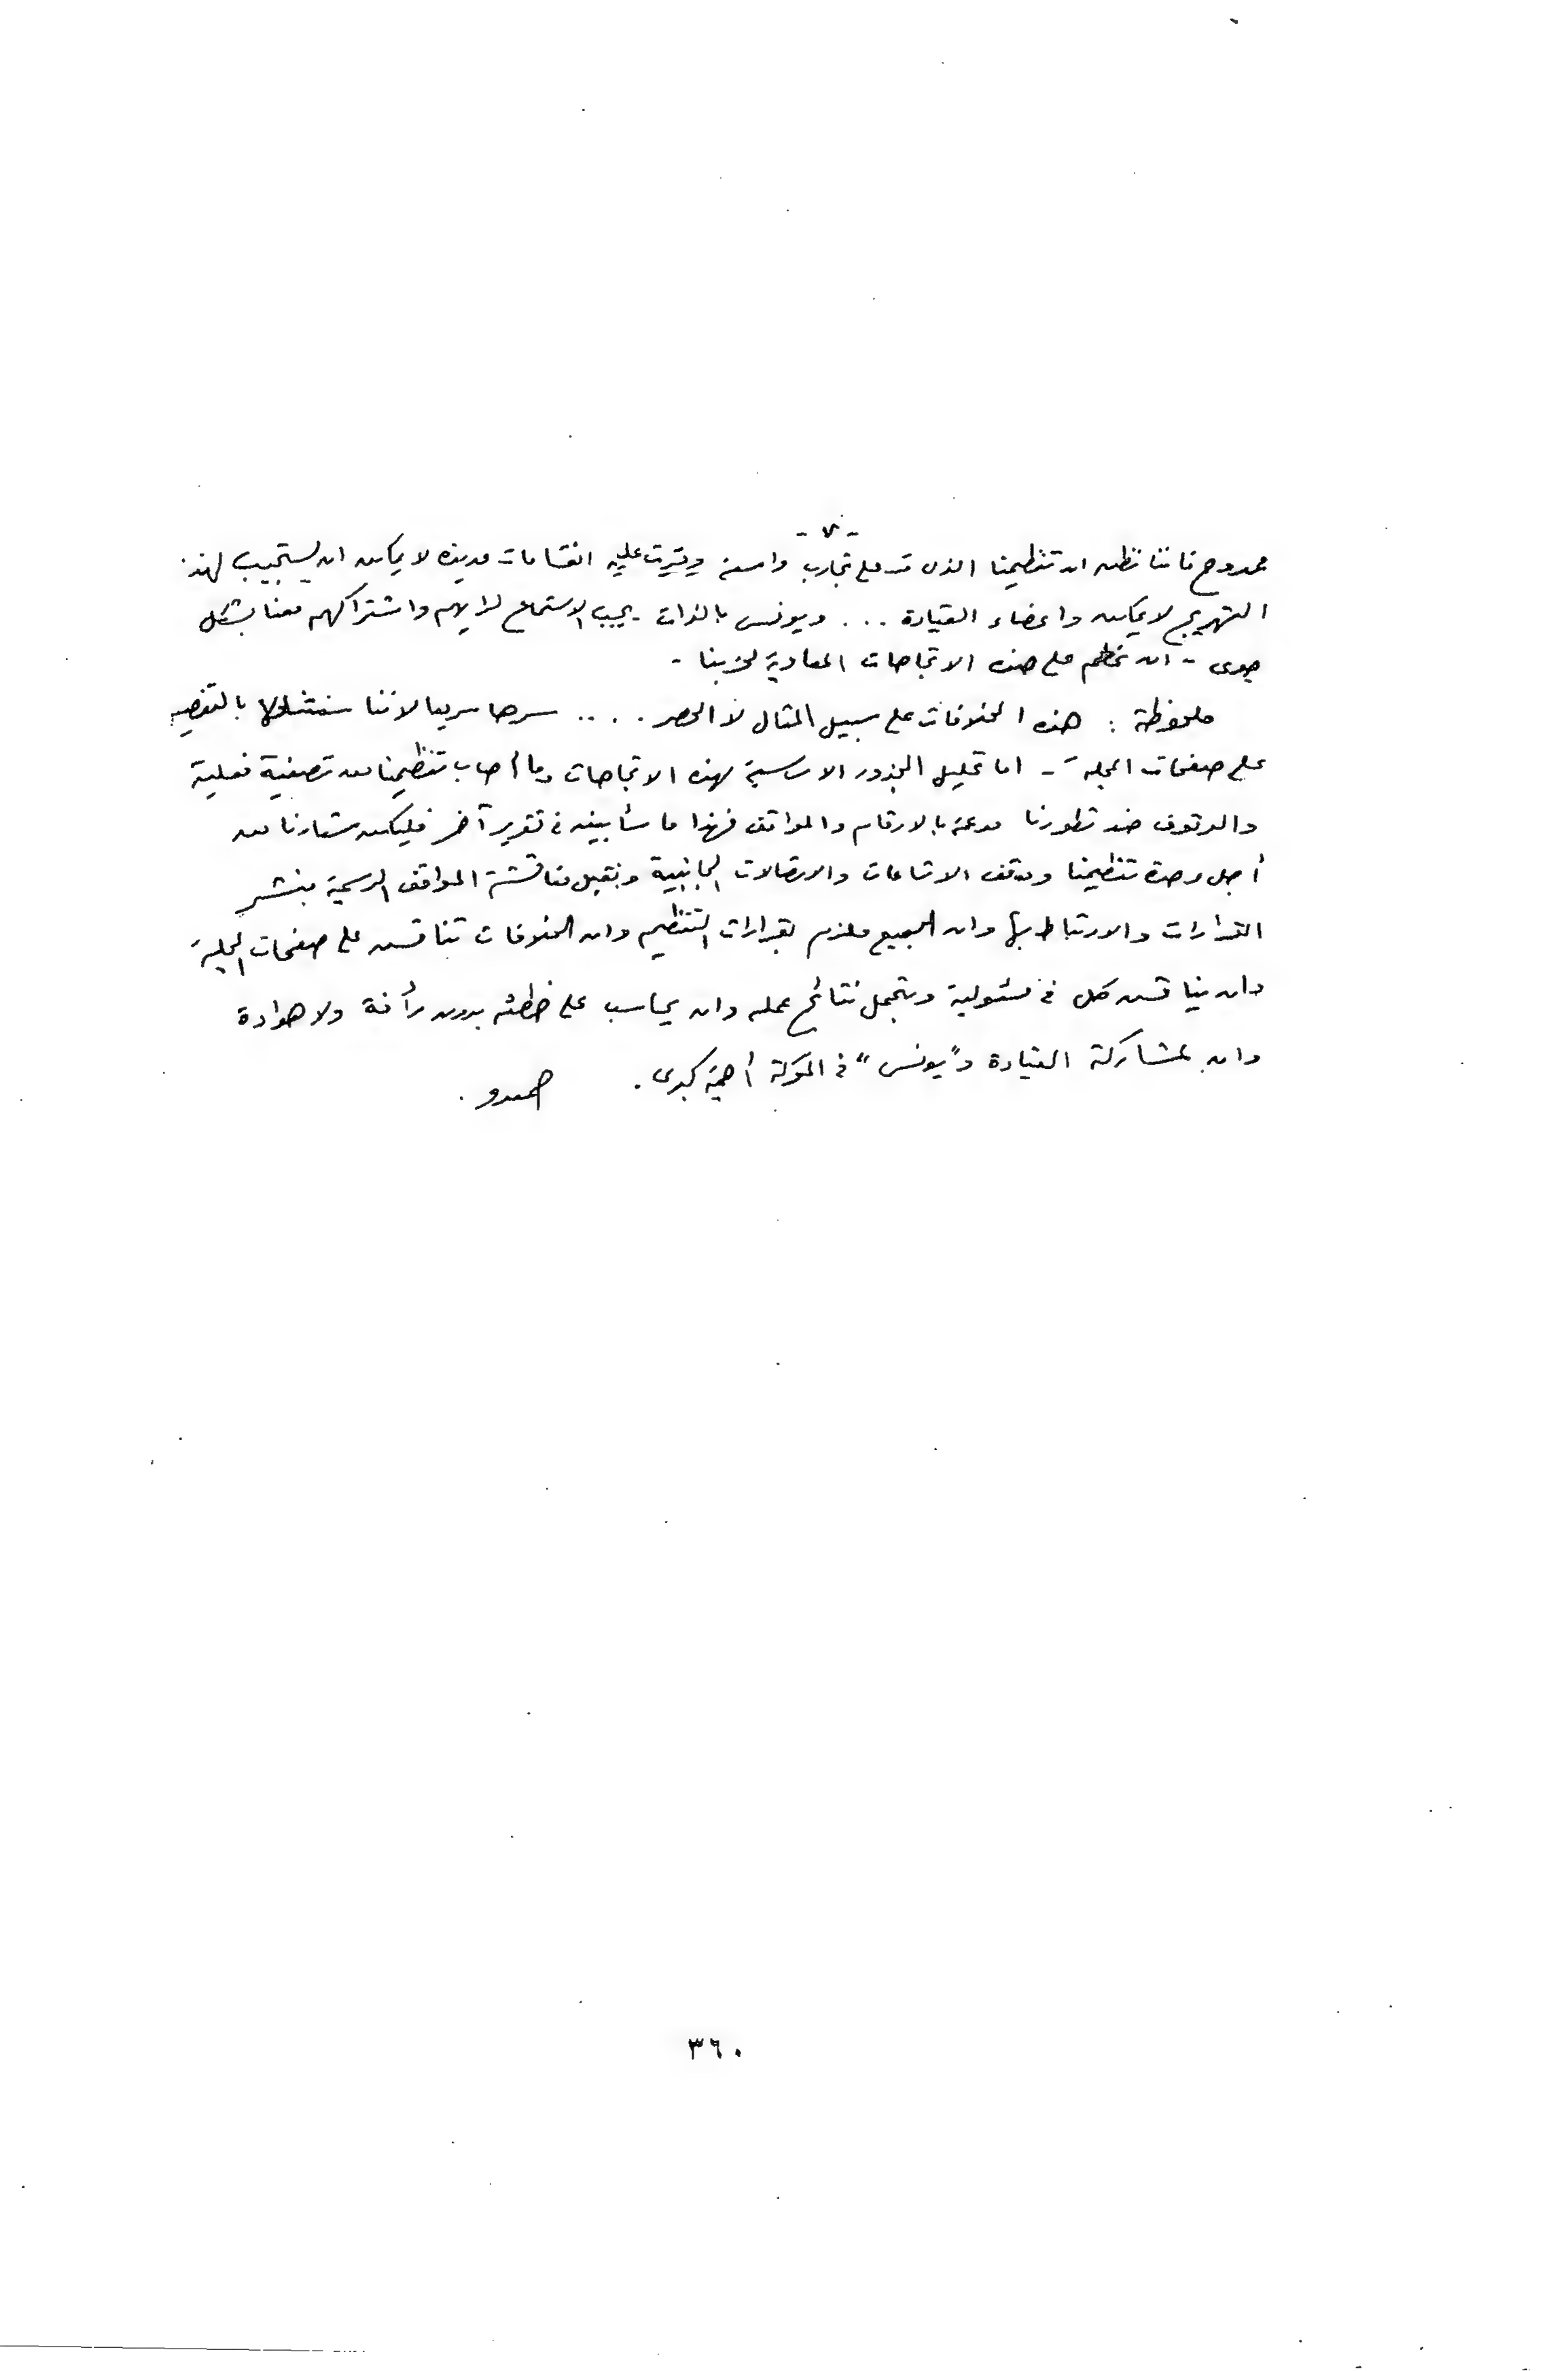 -٧-
ممدوح فاننا نظن ان تنظيمنا الذى مر على تجارب واسعة وترتبت عليه انقسامات عديدة لا يمكن ان يستجيب لهذا
التهريج لا يمكن واعضاء القيادة ... ويونس بالذات - يجب الاستماع لرايهم واشتراكهم معنا بشكل
جدى - ان نحطم على هذه الاتجاهات المعادية لحزبنا -
ملحوظة : هذه الخلافات على سبيل المثال لا الحصر .... سريعا لاننا سنتناولها بالتفصيل
على صفحات المجلة - اما تحليل الجذور الاساسية لهذه الاتجاهات وما أصاب تنظيمنا من تصفية فعلية
والوقوف ضد تطورنا مدعمة بالارقام والمواقف فهذا ما سأبينه فى تقرير آخر فليكن شعارنا من
أجل وحدة تنظيمنا وقف الاشاعات والاتصالات الجانبية ونقبل مناقشة المواقف الرسمية بنشر
القرارات والارتباط بها وان الجميع ملزم بقرارات التنظيم وان الخلافات تناقش على صفحات المجلة
وان يناقش كل فى مسئولية ويتحمل نتائج عمله وان يحاسب على خطئه بدون رأفة ولا هوادة
وان لمشاركة القيادة و"يونس" فى المعركة أهمية كبرى . حمدو .
٣٦٠